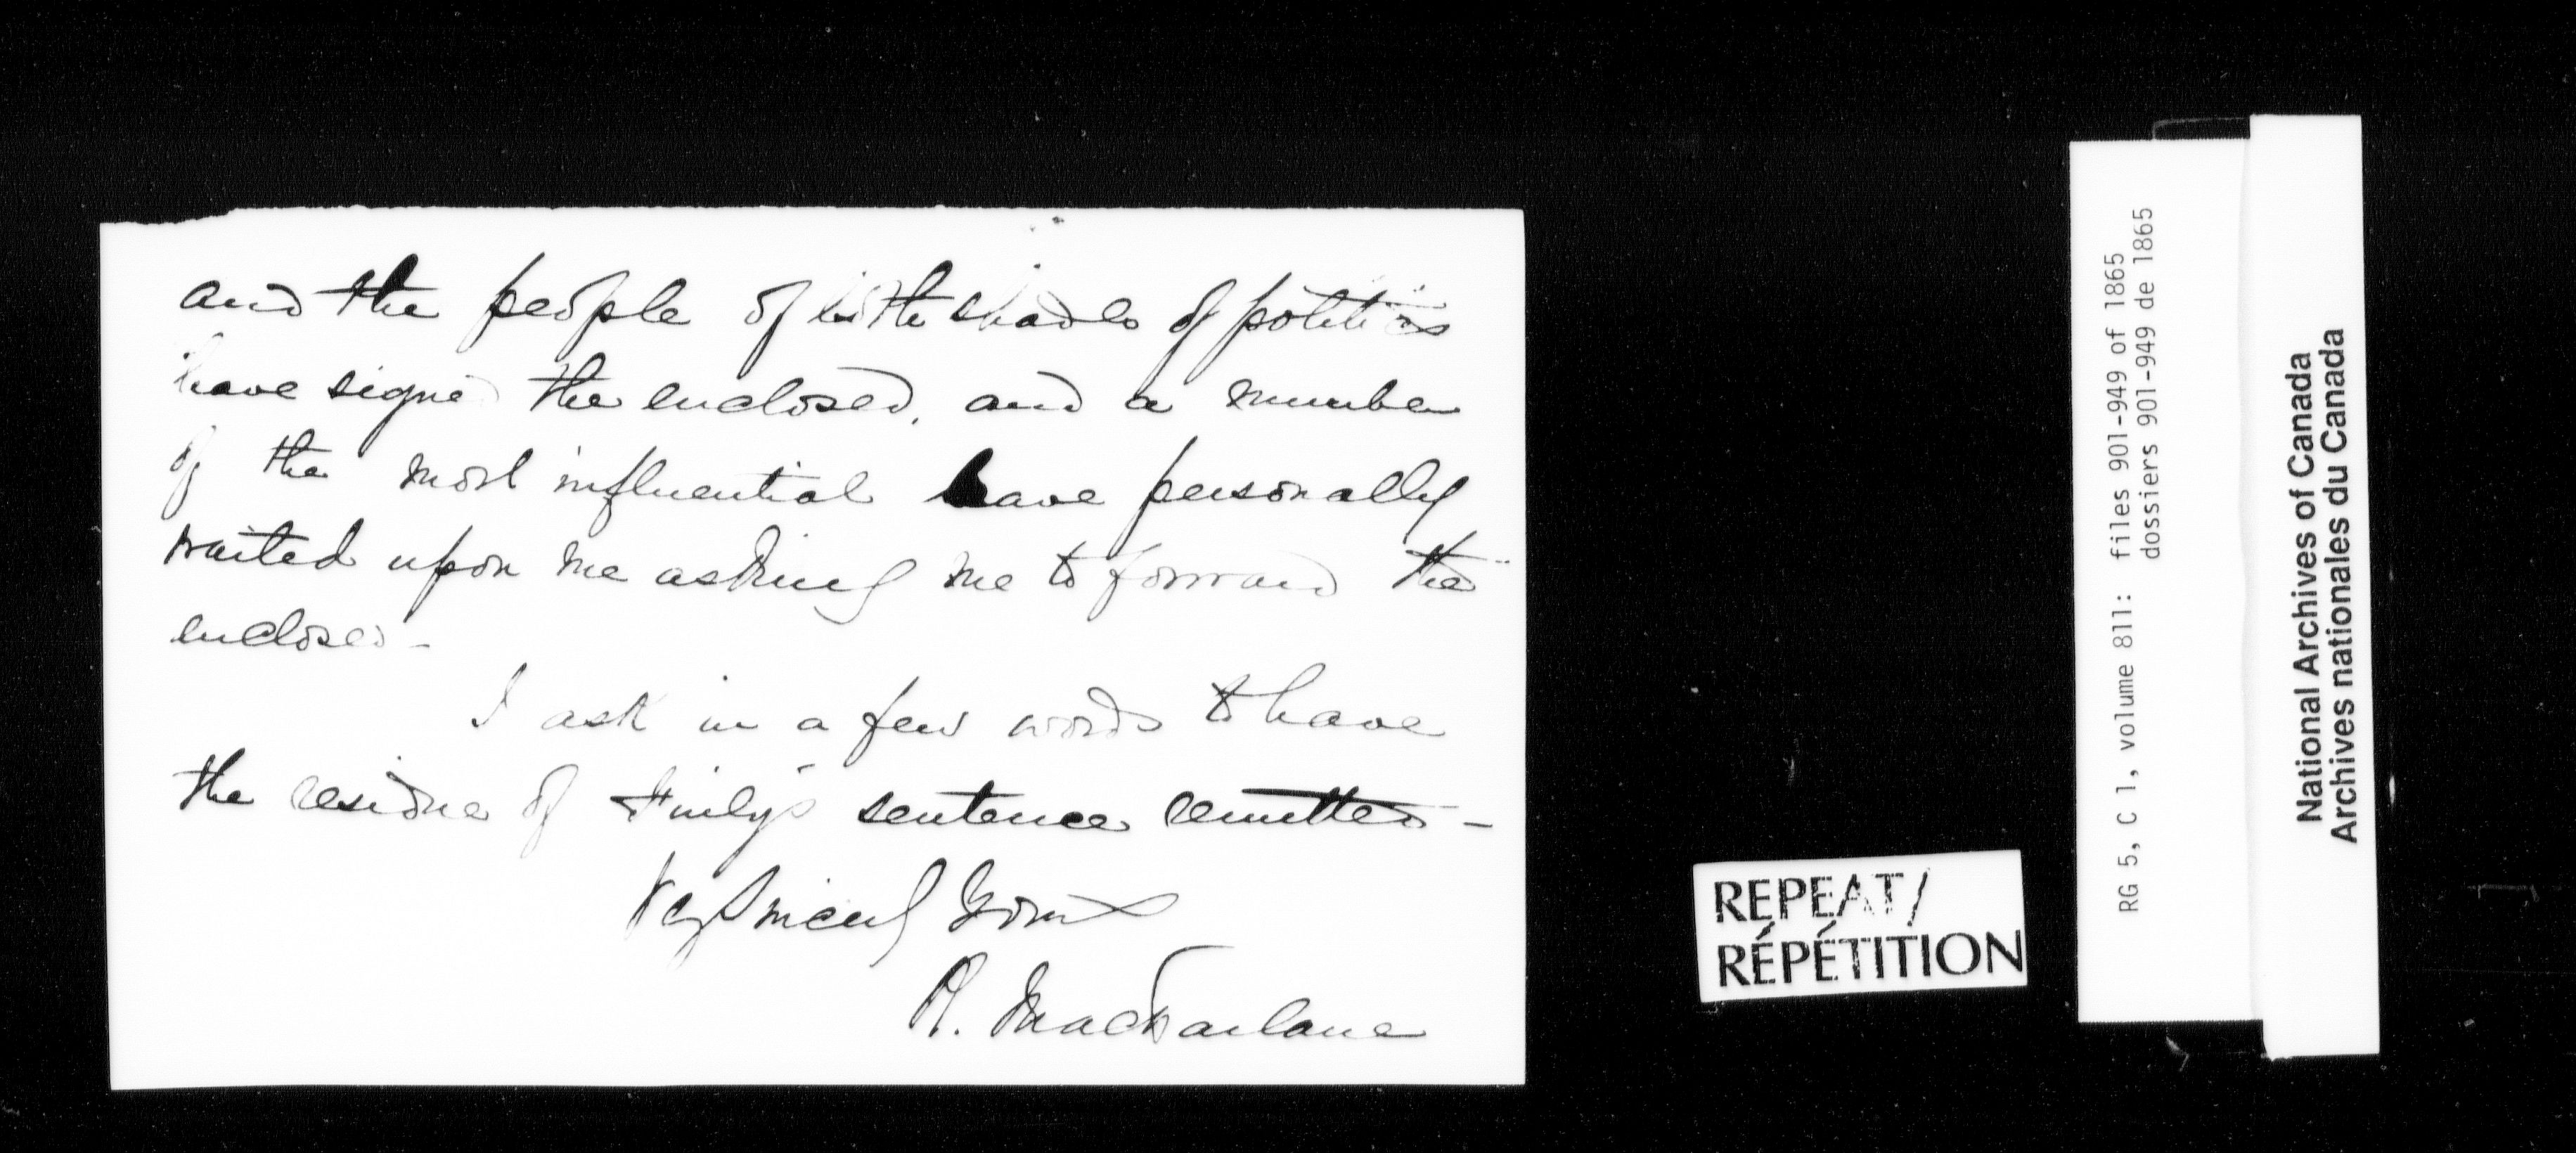 and the people of both shades of politics
have signed the enclosed, and a number
of the most influential have personally
waited upon me asking me to forward the
enclosed –
I ask in a few words to have
the residue of sentence remitted –
Very Sincerely Yours
R. MacFarlane
REPEAT/
RÉPÉTITION
RG 5, C 1, volume 811: files 901-949 of 1865
dossiers 901-949 de 1865
National Archives of Canada
Archives nationales du Canada